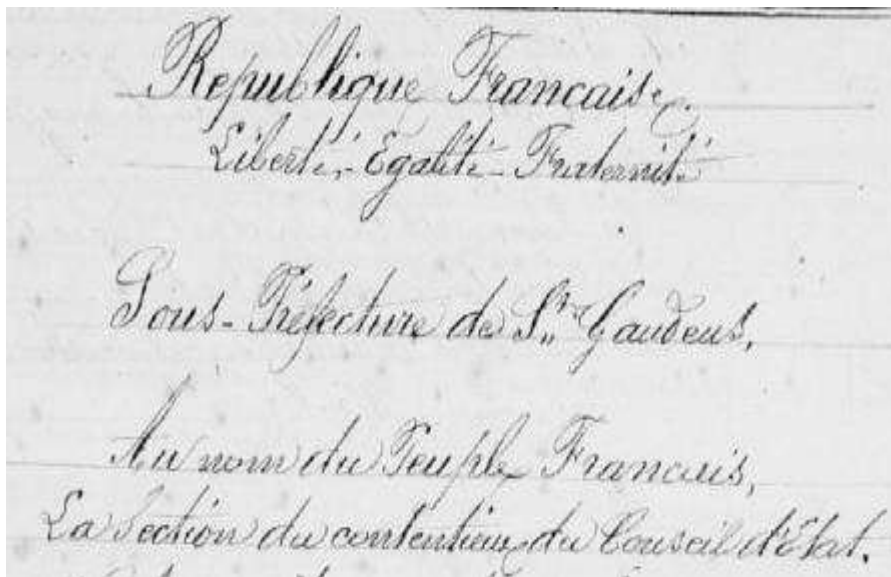 Republique Francaise.
Liberté, Egalité Fraternité
Sous-Préfecture de St Gaudens,
Au nom du Peuple Francais,
La Section du contentieux du Conseil d'Etat.